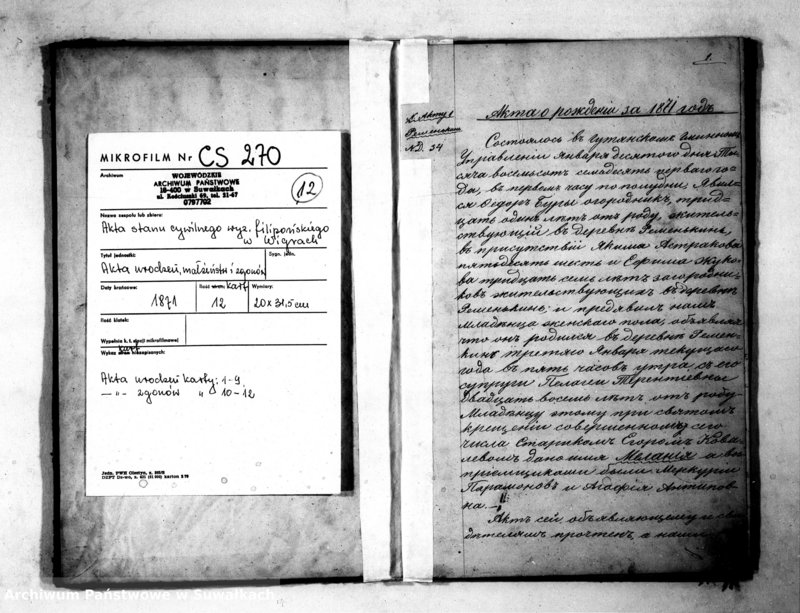 MIKROFILM Nr CS 270
Archiwum
WOJEWÓDZKIE
ARCHIWUM PAŃSTWOWE
16-400 w Suwałkach
ul. Kościuszki 69, tel. 21-67
0797702
12
Nazwa zespołu lub zbioru:
Akta stanu cywilnego wyz. filipońskiego
w Wigrach
Tytuł jednostki:
Sygn. jedn.
Akta urodzeń, małżeństw i zgonów
Daty krańcowe:
Ilość stron: kart
Wymiary:
1871
12
20 x 31,5 cm
Ilość klatek:
Wypełnia k. t. stacji mikrofilmowej
kart
Wykaz stron niezapisanych:
Akta urodzeń karty: 1-9
—„— zgonów „ 10-12
1.
Къ Акту 1
Ременькинь
N.D. 34
Акта о рожденіи за 1871 годъ
Состоялось въ Гутянскомъ Гминномъ
Управленіи Января десятаго дня Ты-
сяча восемьсотъ семьдесятъ перваго го-
да, въ первомъ часу по полудни, Явил-
ся Ѳедоръ Буры огородникъ, трид-
цать одинъ лѣтъ отъ роду житель-
ствующій въ деревнѣ Ременькинь,
въ присутствіи Якима Астрахова
пятьдесятъ шесть и Ефима Жуко-
ва тридцать семь лѣтъ загородни-
ковъ жительствующихъ въ деревнѣ
Ременькинь, и предявилъ намъ
младенца женскаго пола, объявляя
что онъ родился въ деревнѣ Ремень-
кинь третяго Января текущаго
года въ пять часовъ утра, съ его
супруги Пелагеи Терентіевное
двадцать восемь лѣтъ отъ роду
Младенцу этому при святомъ
крещеніи совершенномъ сего
числа Старикомъ Егоромъ Кова-
левомъ дано имя Меланія а вос-
пріемщиками были Меркурій
Парамоновъ и Агафія Антипов-
на.—
Актъ сей, объявляющему и сви-
дѣтелямъ прочтенъ, а нами
Archiwum Państwowe w Suwałkach